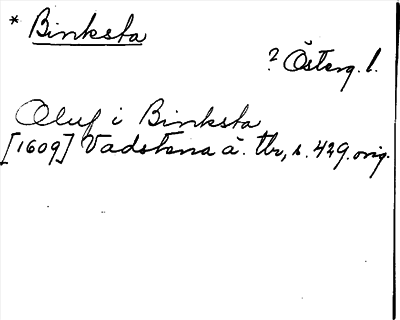 * Binksta
? Österg. l.
Oluf i Binksta
[1609] Vadstena ä. tbr, s. 429. orig.